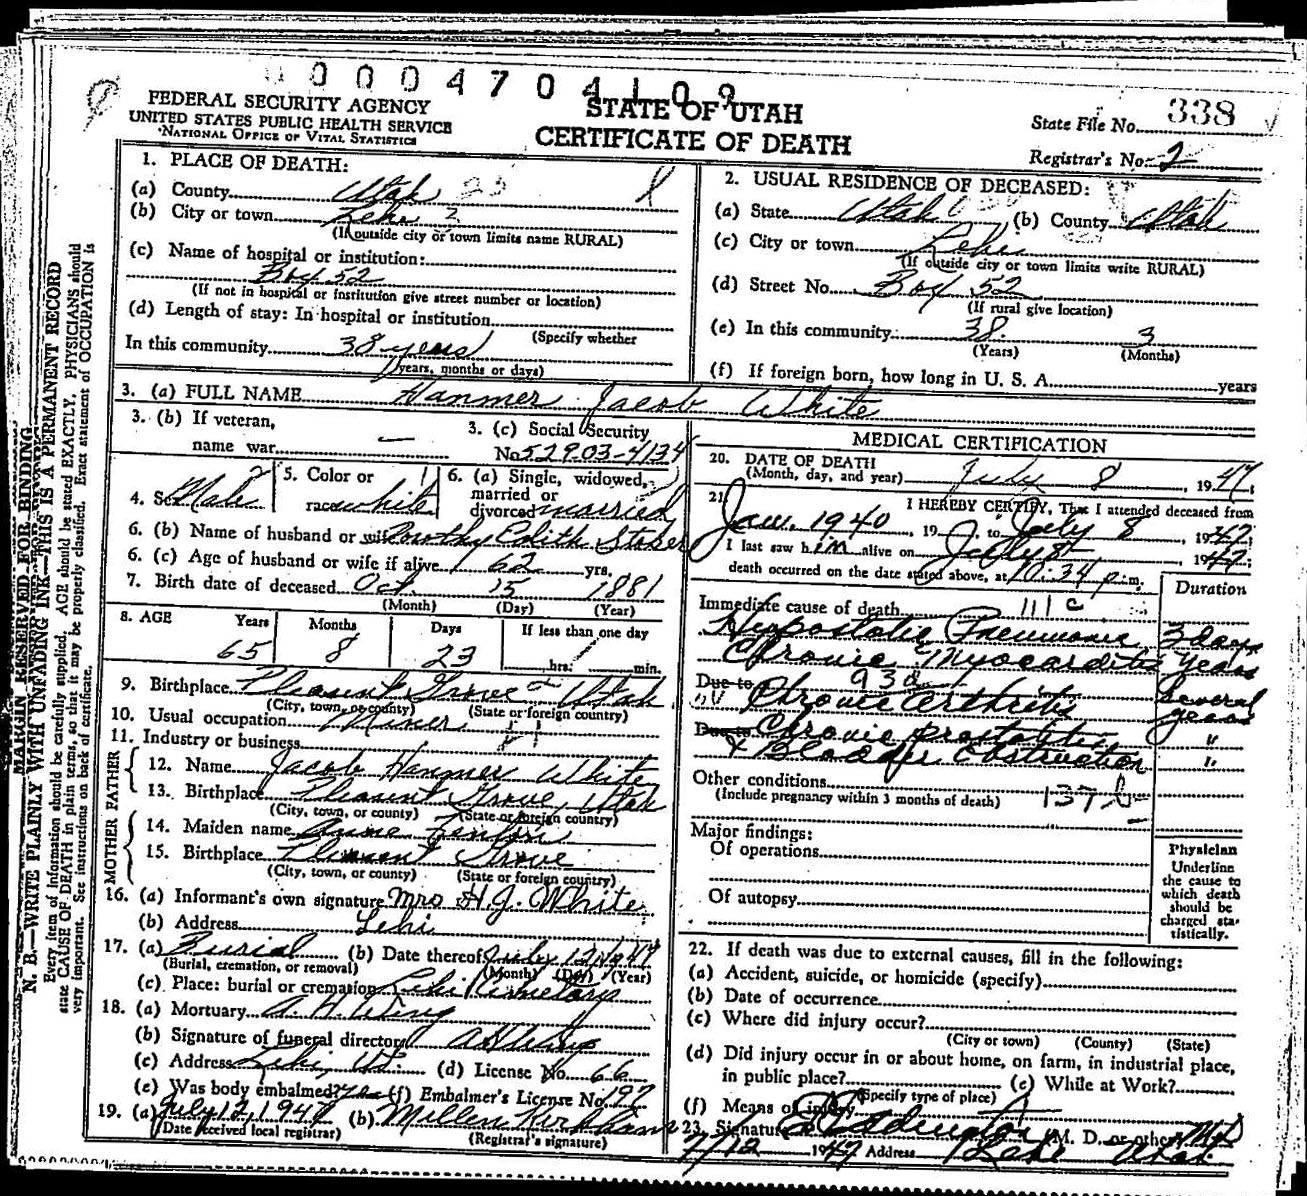 0004704109
FEDERAL SECURITY AGENCY
UNITED STATES PUBLIC HEALTH SERVICE
NATIONAL OFFICE OF VITAL STATISTICS
STATE OF UTAH
CERTIFICATE OF DEATH
State File No. 338
Registrar's No. 2
MARGIN RESERVED FOR BINDING
N. B.—WRITE PLAINLY WITH UNFADING INK—THIS IS A PERMANENT RECORD
Every item of information should be carefully supplied. AGE should be stated EXACTLY. PHYSICIANS should
state CAUSE OF DEATH in plain terms, so that it may be properly classified. Exact statement of OCCUPATION is
very important. See instructions on back of certificate.
1. PLACE OF DEATH:
(a) County Utah
(b) City or town Lehi
(If outside city or town limits name RURAL)
(c) Name of hospital or institution:
Box 52
(If not in hospital or institution give street number or location)
(d) Length of stay: In hospital or institution
(Specify whether
In this community 38 years
years, months or days)
2. USUAL RESIDENCE OF DECEASED:
(a) State Utah (b) County Utah
(c) City or town Lehi
(If outside city or town limits write RURAL)
(d) Street No. Box 52
(If rural give location)
(e) In this community: 38 3
(Years) (Months)
(f) If foreign born, how long in U. S. A. years
3. (a) FULL NAME Hanmer Jacob White
3. (b) If veteran,
name war —
3. (c) Social Security
No. 529-03-4134
4. Sex Male
5. Color or
race white
6. (a) Single, widowed,
married or
divorced married
6. (b) Name of husband or wife Dorothy Edith
6. (c) Age of husband or wife if alive 62 yrs.
7. Birth date of deceased Oct. 15 1881
(Month) (Day) (Year)
8. AGE Years Months Days If less than one day
65 8 23 hrs. min.
9. Birthplace Pleasant Grove Utah
(City, town, or county) (State or foreign country)
10. Usual occupation Miner
11. Industry or business
FATHER
12. Name Jacob Hanmer White
13. Birthplace Pleasant Grove, Utah
(City, town, or county) (State or foreign country)
MOTHER
14. Maiden name Anne
15. Birthplace Pleasant Grove
(City, town, or county) (State or foreign country)
16. (a) Informant's own signature Mrs H. J. White
(b) Address Lehi
17. (a) Burial (b) Date thereof July 12 1947
(Burial, cremation, or removal) (Month) (Day) (Year)
(c) Place: burial or cremation Lehi Cemetary
18. (a) Mortuary A. H. Wing
(b) Signature of funeral director A H Wing
(c) Address Lehi, Ut. (d) License No. 66
(e) Was body embalmed? yes (f) Embalmer's License No. 197
19. (a) July 12, 1947 (b) Millen Kirkham
(Date received local registrar) (Registrar's signature)
MEDICAL CERTIFICATION
20. DATE OF DEATH
(Month, day, and year) July 8, 1947;
21. I HEREBY CERTIFY, That I attended deceased from
Jan. 1940, 19 , to July 8 1947;
I last saw him alive on July 8 1947;
death occurred on the date stated above, at 10:34 p. m.
Duration
Immediate cause of death 111 c
Hypostatic Pneumonia 3 days
Chronic Myocarditis years
Due to 93d
Chronic arthritis Several years
Due to Chronic prostatitis "
+ Bladder Obstruction "
Other conditions 137 b
(Include pregnancy within 3 months of death)
Major findings:
Of operations
Of autopsy
Physician
Underline
the cause to
which death
should be
charged sta-
tistically.
22. If death was due to external causes, fill in the following:
(a) Accident, suicide, or homicide (specify)
(b) Date of occurrence
(c) Where did injury occur?
(City or town) (County) (State)
(d) Did injury occur in or about home, on farm, in industrial place,
in public place? (e) While at Work?
(Specify type of place)
(f) Means of injury
23. Signature Eddington (M. D. or other) MD
7/12 1947 Address Lehi Utah.